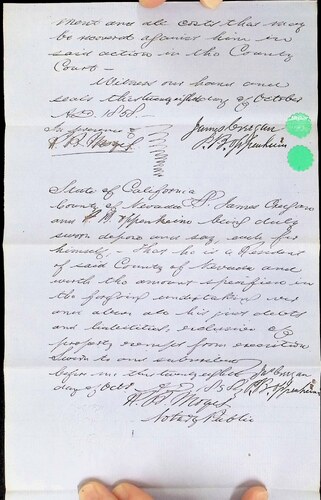 ment and all costs that may
be recovered against him in
said action in the County
Court —
Witness our hands and
seals this twenty eight day of October
A.D. 1858. —
In presence of James Creegan
P. B. Oppenheim
State of California
County of Nevada James Creegan
and P. B. Oppenheim being duly
sworn depose and say each for
himself, That he is a Resident
of said County of Nevada and
worth the amount specified in
the foregoing undertaking over
and above all his just debts
and liabilities, exclusive of
property exempt from execution
Sworn to and subscribed
before me this twenty eight Jas Creegan
day of Oct A.D. 1858 P. B. Oppenheim
Notary Public